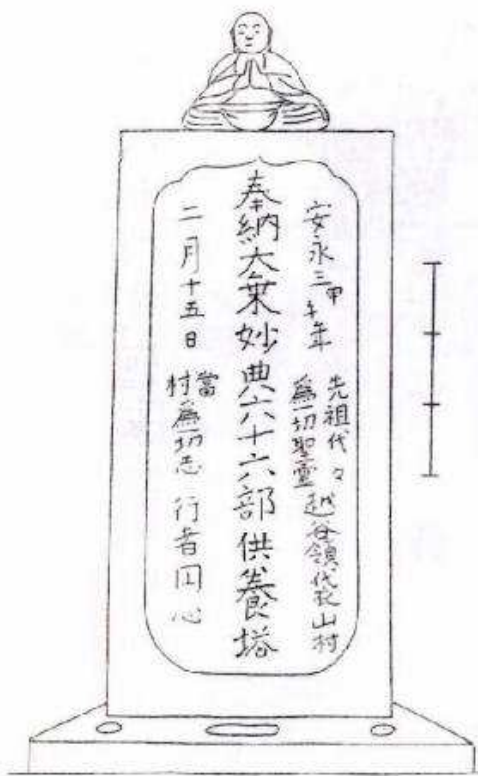 安永三甲午年
先祖代々
爲一切聖靈
越谷領袋山村
奉納大乗妙典六十六部供養塔
二月十五日
當
村爲一切志
行者円心